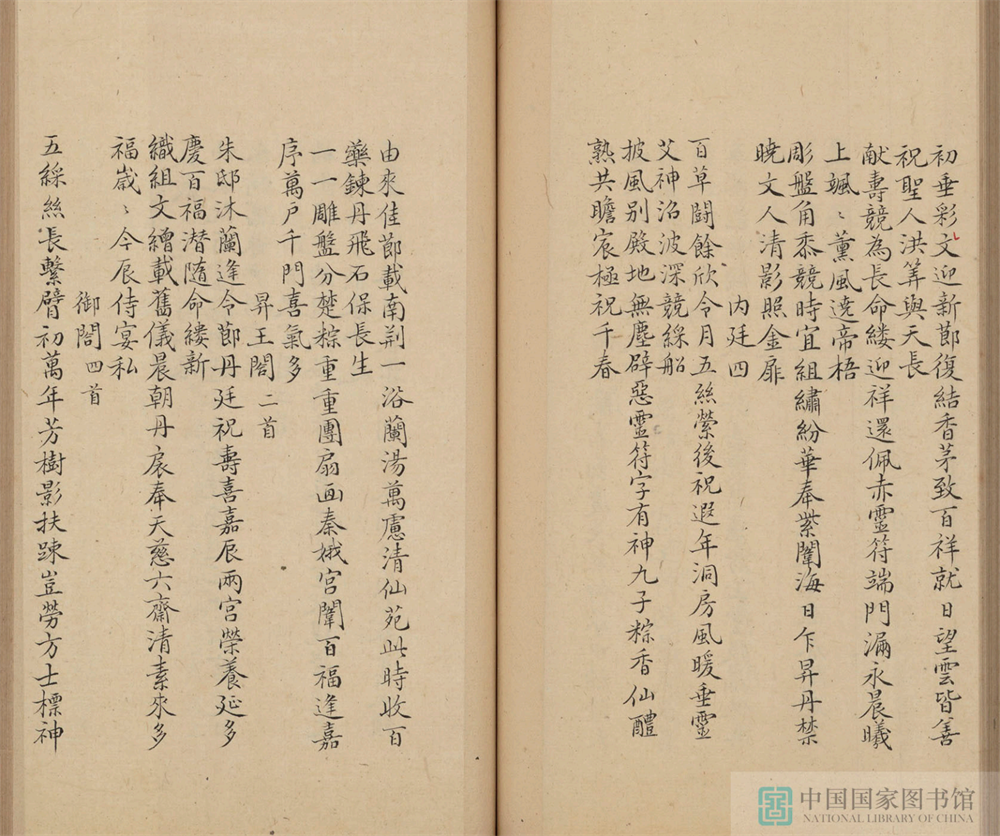 初垂彩文迎新節復結香茅致百祥就日望雲皆善
祝聖人洪筭與天長
献壽競為長命縷迎祥還佩赤靈符端門漏永晨曦
上颯〻薰風遶帝梧
彫盤角黍競時宜組繡紛華奉紫闈海日乍昇丹禁
曉文人清影照金扉
内廷四
百草鬪餘欣令月五絲縈後祝遐年洞房風暖垂靈
艾神沼波深競綵船
披風别殿地無塵辟惡靈符字有神九子粽香仙醴
熟共瞻宸極祝千春
由來佳節載南荆一浴蘭湯萬慮清仙苑此時收百
藥鍊丹飛石保長生
一一雕盤分楚粽重重團扇画秦娥宫闈百福逢嘉
序萬户千門喜氣多
昇王閤二首
朱邸沐蘭逢令節丹廷祝壽喜嘉辰兩宫榮養延多
慶百福潛隨命縷新
織組文繒載舊儀晨朝丹扆奉天慈六齋清素來多
福歲〻今辰侍宴私
御閤四首
五綵絲長繫臂初萬年芳樹影扶踈豈勞方士標神
中国国家图书馆
NATIONAL LIBRARY OF CHINA